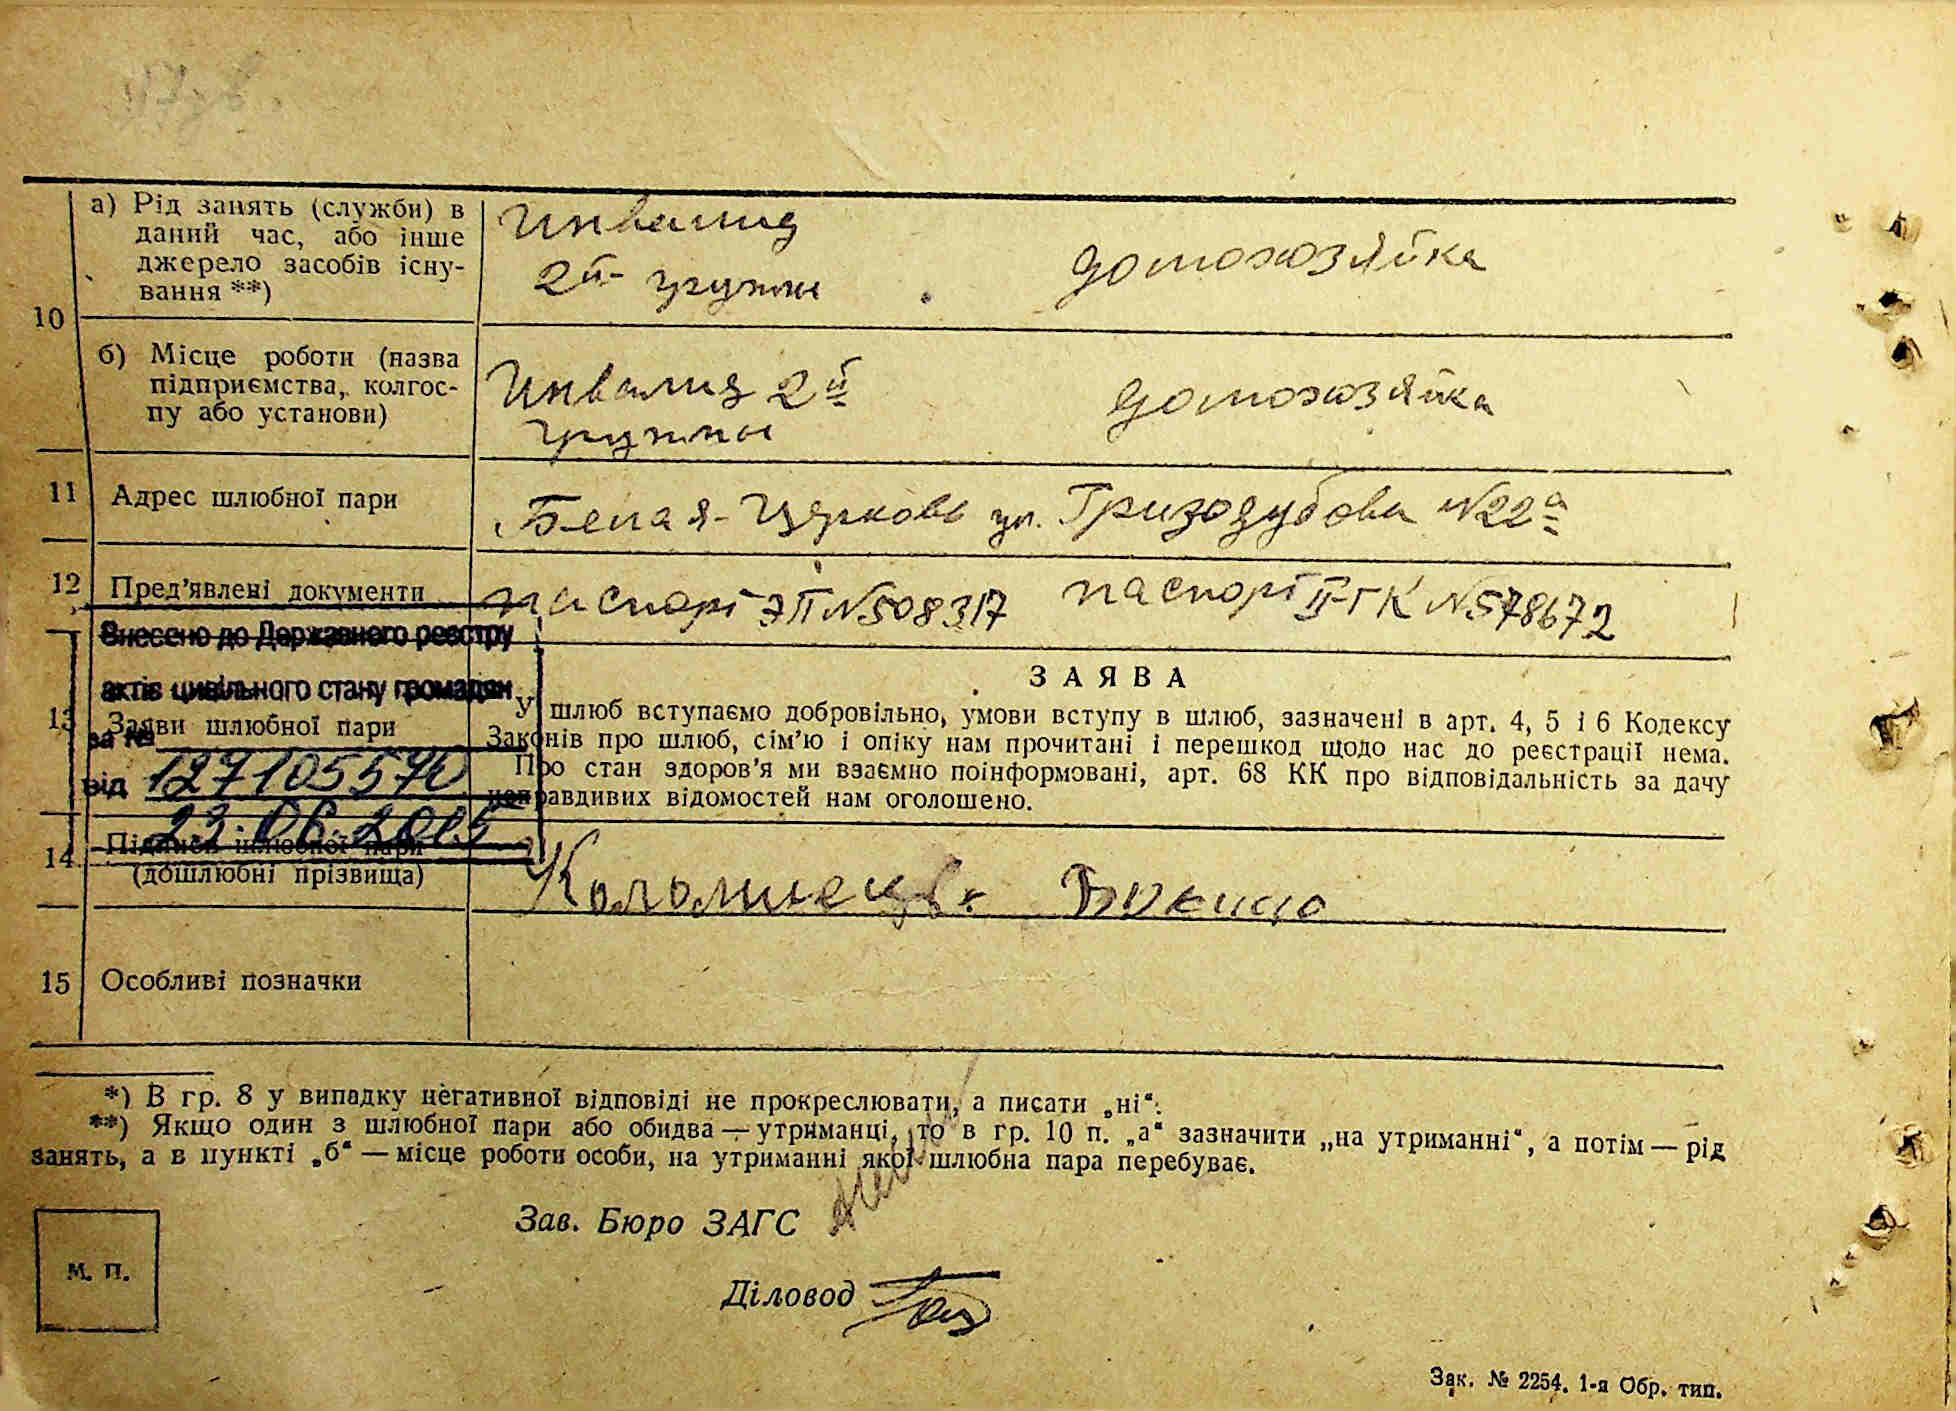 а) Рід занять (служби) в
даний час, або інше
джерело засобів існу-
вання **)
Инвалид
2й группы
домохозяйка
10
б) Місце роботи (назва
підприємства, колгос-
пу або установи)
Инвалид 2й
группы
домохозяйка
11 Адрес шлюбної пари
Белая-Церковь ул. Гризодубова №22а
12 Пред'явлені документи
паспорт ЭП №508317 паспорт II-ГК №578672
Внесено до Державного реєстру
актів цивільного стану громадян
за №
127105570
від
23.06.2005
13 Заяви шлюбної пари
ЗАЯВА
У шлюб вступаємо добровільно, умови вступу в шлюб, зазначені в арт. 4, 5 і 6 Кодексу
Законів про шлюб, сім'ю і опіку нам прочитані і перешкод щодо нас до реєстрації нема.
Про стан здоров'я ми взаємно поінформовані, арт. 68 КК про відповідальність за дачу
неправдивих відомостей нам оголошено.
14 Підписи шлюбної пари
(дошлюбні прізвища)
15 Особливі позначки
*) В гр. 8 у випадку негативної відповіді не прокреслювати, а писати „ні“.
**) Якщо один з шлюбної пари або обидва — утриманці, то в гр. 10 п. „а“ зазначити „на утриманні“, а потім — рід
занять, а в пункті „б“ — місце роботи особи, на утриманні якої шлюбна пара перебуває.
Зав. Бюро ЗАГС
М. П.
Діловод
Зак. № 2254. 1-я Обр. тип.